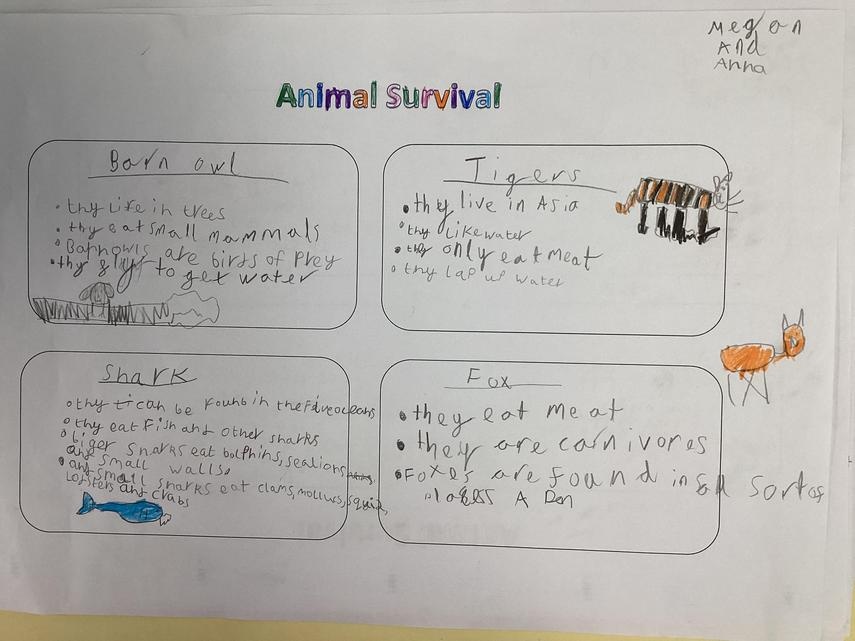 Megan
And
Anna
Animal Survival
Barn owl
• thy life in trees
• thy eat small mammals
• Barnowls are birds of prey
• thy fly to get water
Tigers
• they live in Asia
• thy like water
• thy only eat meat
• thy lap up water
Shark
• thy can be found in the five oceans
• thy eat fish and other sharks
• biger sharks eat dolphins, sealions
and small walls.
• and small sharks eat clams, mollucs, squid,
Lobsters and crabs
Fox
• they eat meat
• they are carnivores
• Foxes are found in all sorts of
places A Den